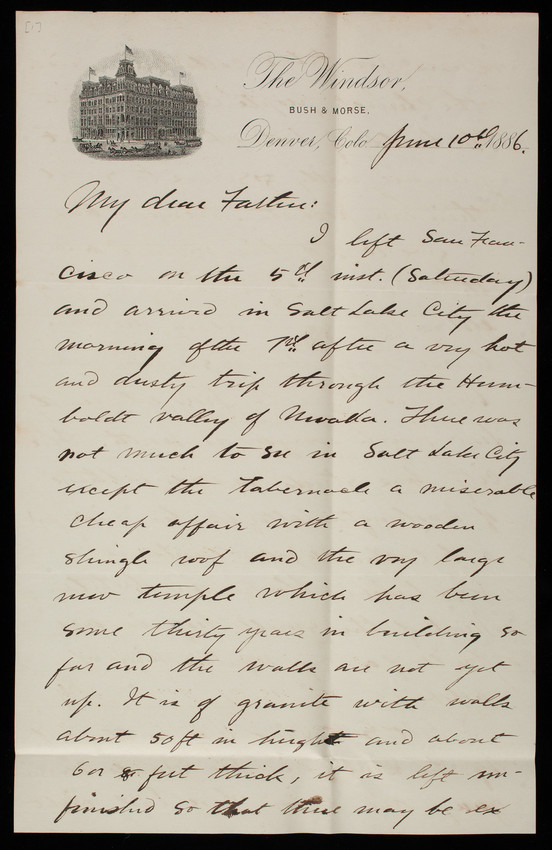 [1]
The Windsor,
BUSH & MORSE,
Denver, Colo June 10th 1886.
My dear Father:
I left San Fran-
cisco on the 5th inst. (Saturday)
and arrived in Salt Lake City the
morning of the 7th after a very hot
and dusty trip through the Hum-
boldt valley of Nevada. There was
not much to see in Salt Lake City
except the Tabernacle a miserable
cheap affair with a wooden
shingle roof and the very large
new temple which has been
some thirty years in building so
far and the walls are not yet
up. It is of granite with walls
about 50 ft in height and about
6 or 8 feet thick, it is left un-
finished so that there may be ex